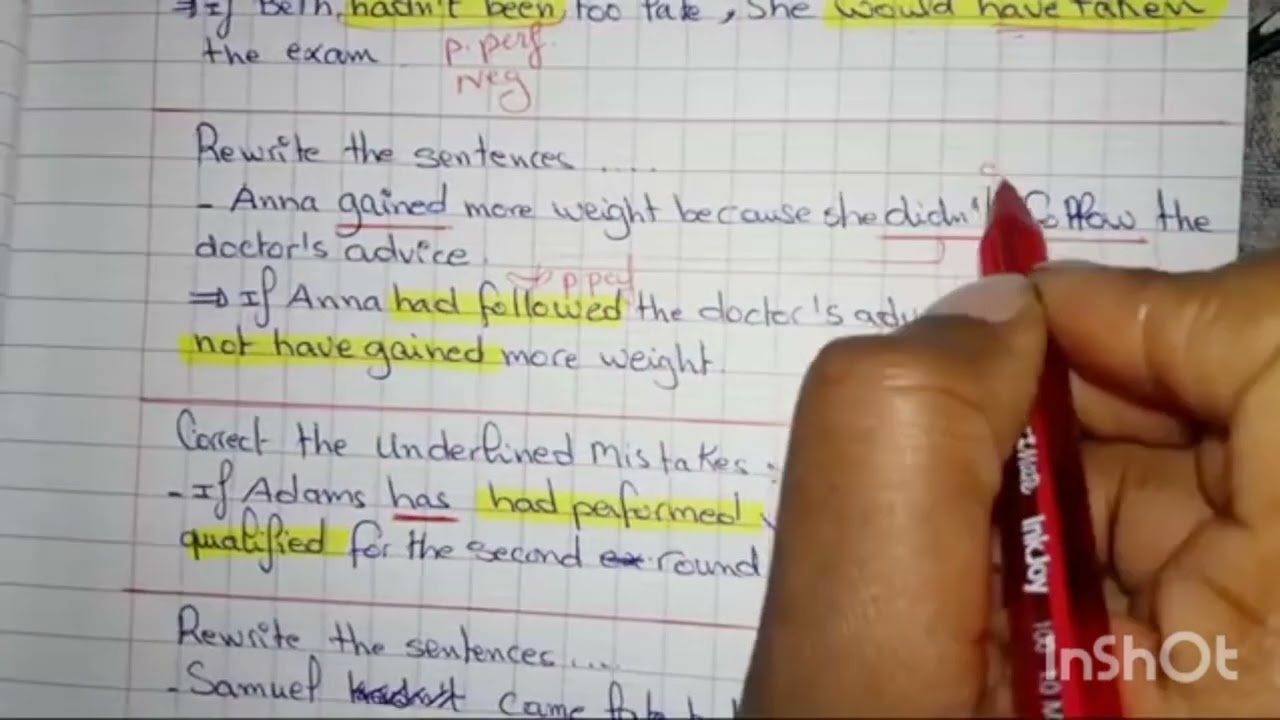 ⇒ If Beth hadn't been too late, she would have taken
the exam.
p. perf.
Neg
Rewrite the sentences ....
- Anna gained more weight because she didn't follow the
doctor's advice.
p perf
⇒ If Anna had followed the doctor's
not have gained more weight
Correct the underlined mistakes:
- If Adams has had performed
qualified for the second round
Rewrite the sentences...
- Samuel came late
InkJoy
InShOt